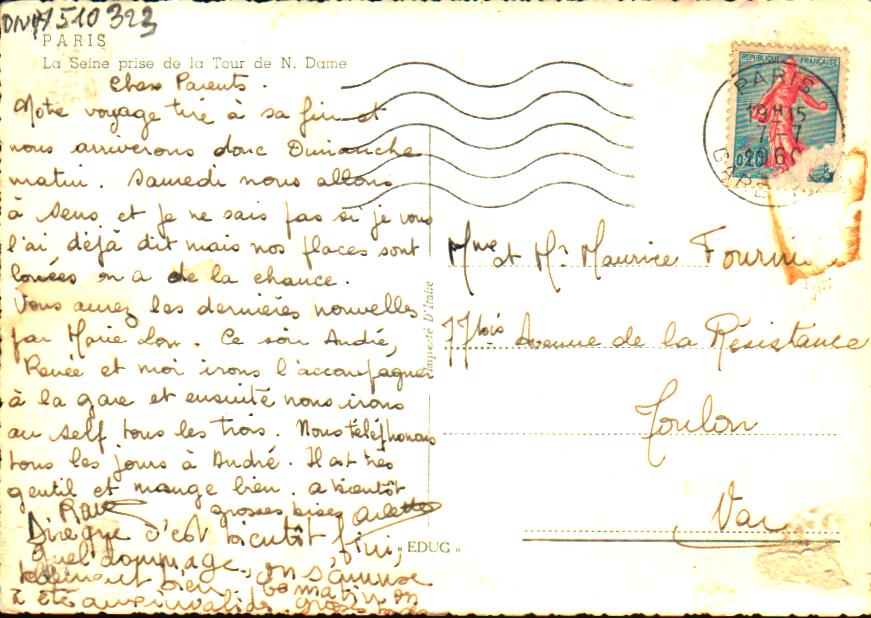 510323
PARIS
La Seine prise de la Tour de N. Dame
Chers Parents.
Notre voyage tire à sa fin et
nous arriverons donc Dimanche
matin. Samedi nous allons
à Sens et je ne sais pas si je vous
l'ai déjà dit mais nos places sont
louées on a de la chance.
Vous aurez les dernières nouvelles
par Marie Lou. Ce soir André,
Renée et moi irons l'accompagner
à la gare et ensuite nous irons
au self tous les trois. Nous téléphonons
tous les jours à André. Il est très
gentil et mange bien. a bientôt
grosses bises Arlette
Dire que c'est bientôt fini,
quel dommage, on s'amuse
bien. Ce matin on
a été aux invalides. grosses bises
REPUBLIQUE FRANÇAISE
0,20
PARIS
19H15
7-7
1960
GARE
Mme et Mr Maurice
77 bis Avenue de la Résistance
Toulon
Var
Impecté D'Italie
« EDUG »